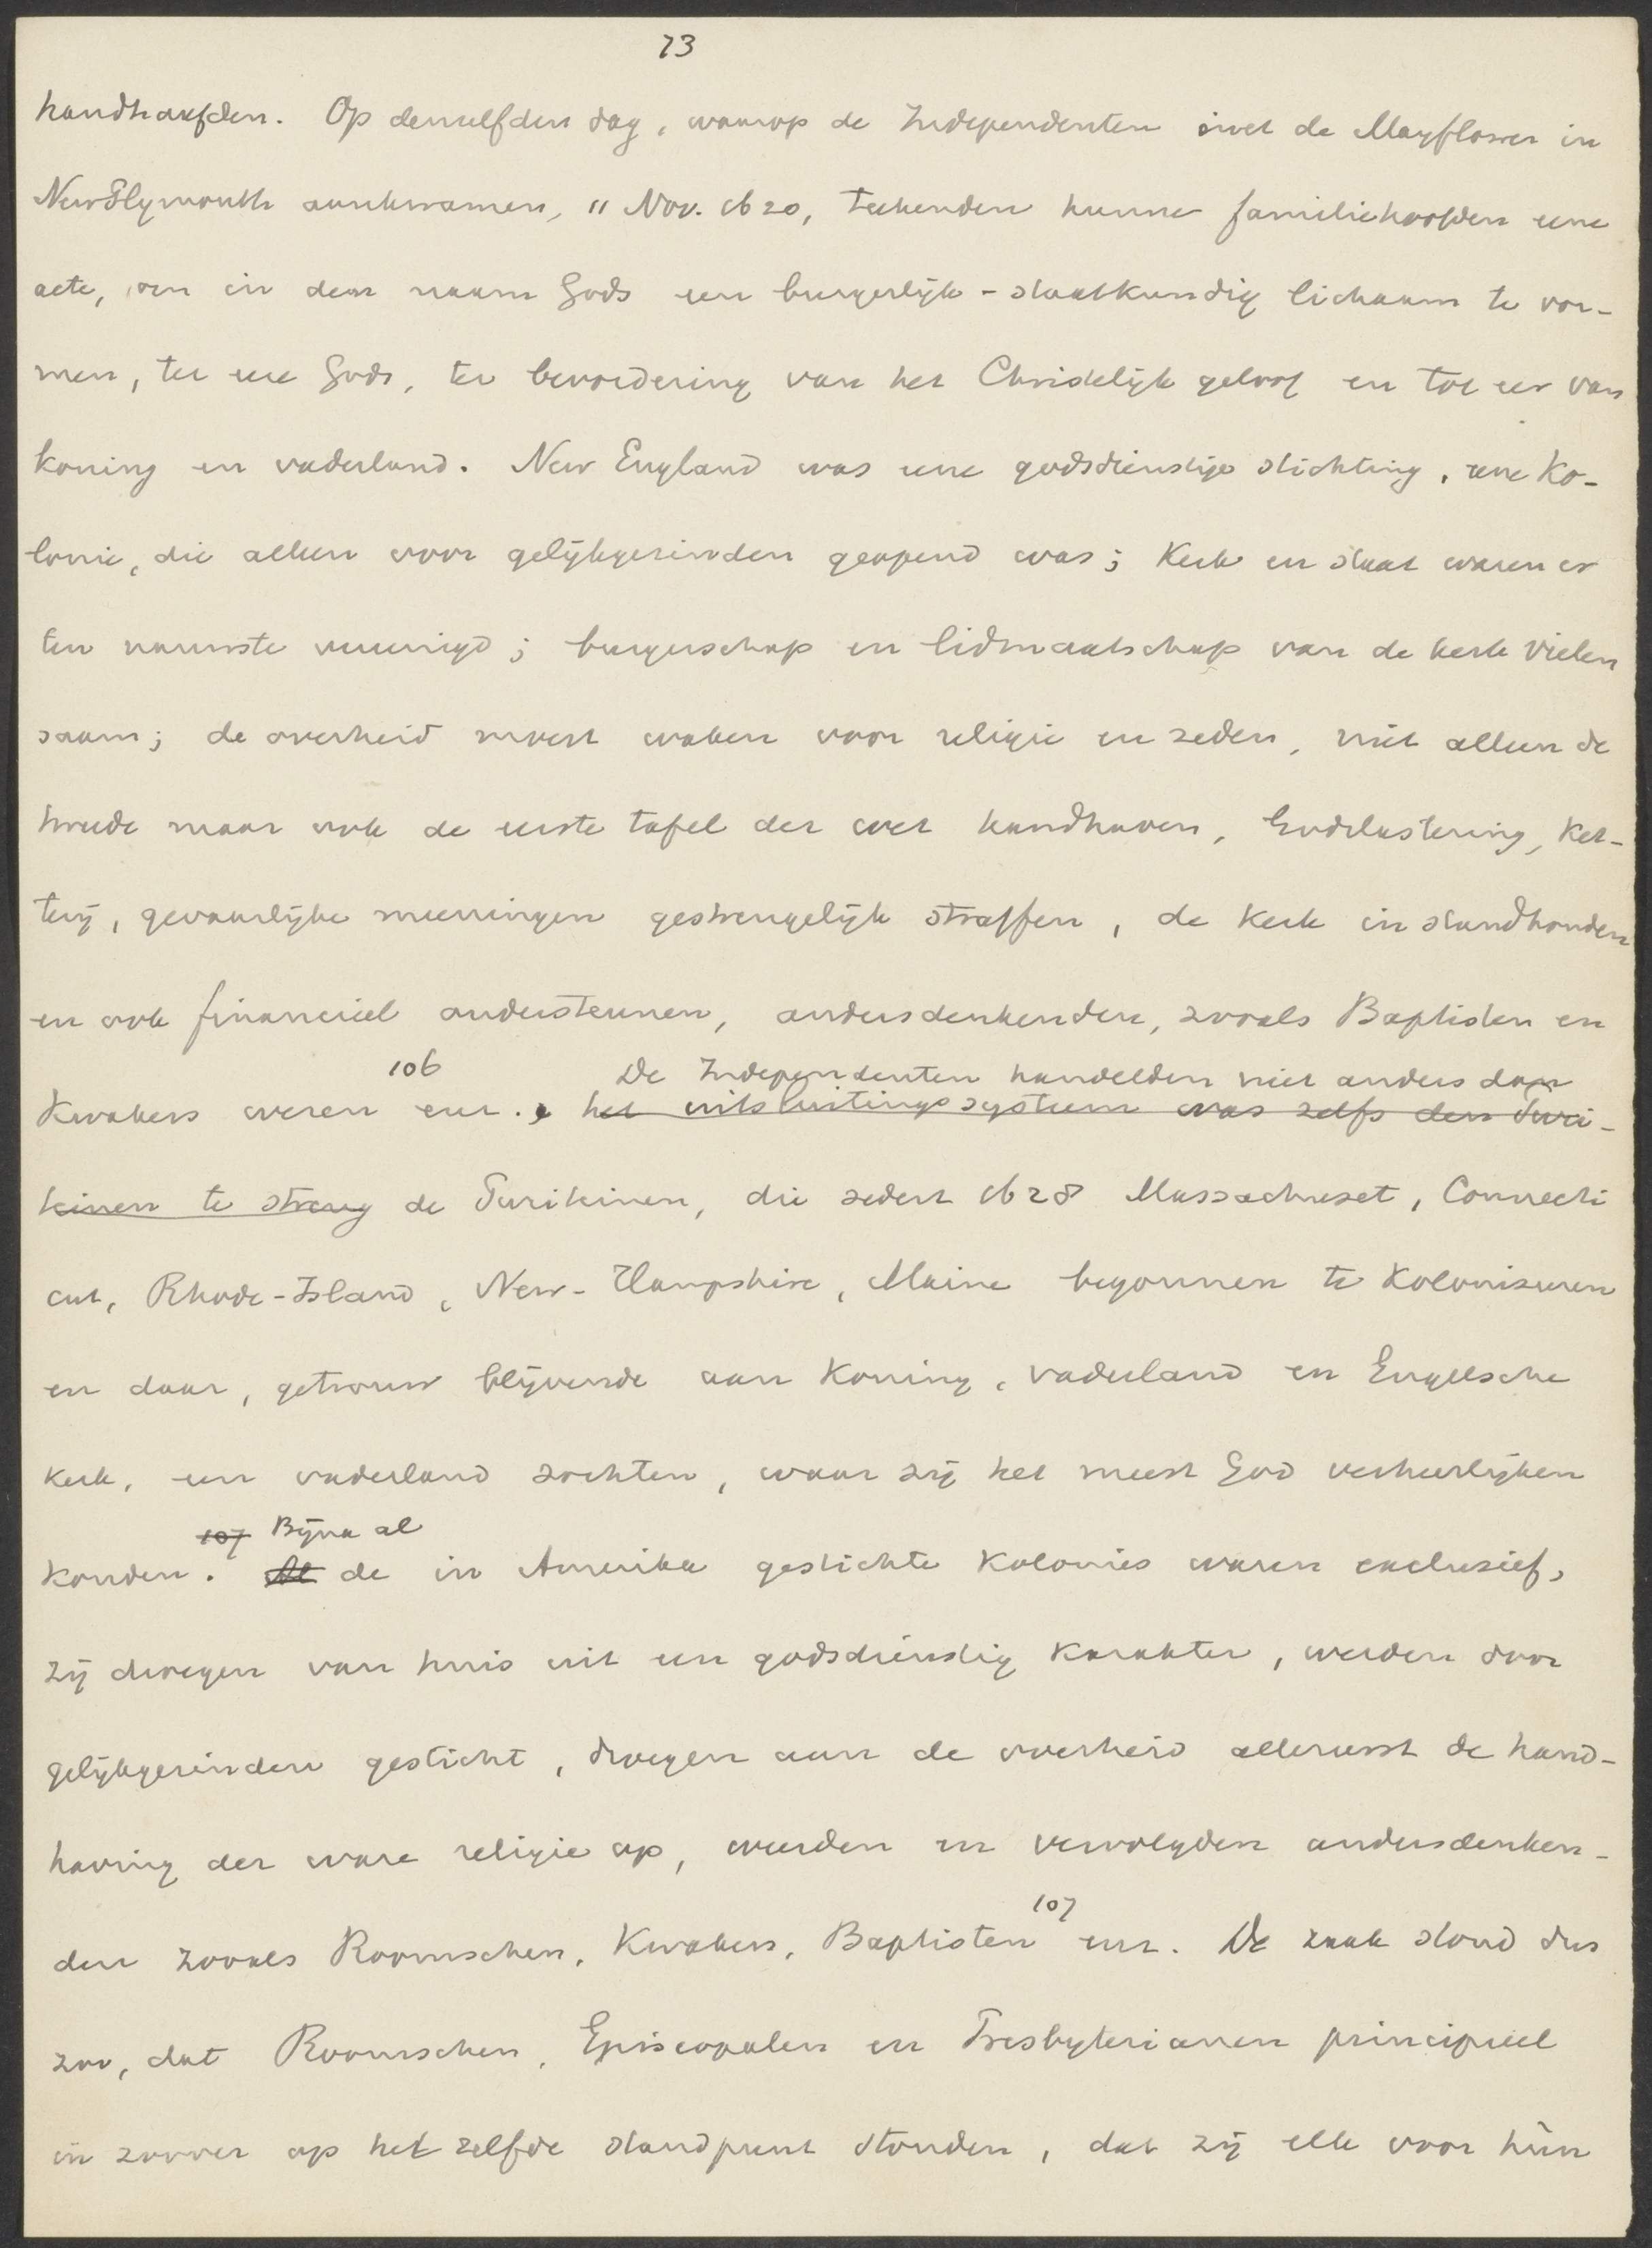 73
handhaafden. Op denzelfden dag, waarop de Independenten met de Mayflower in
New Plymouth aankwamen, 11 Nov. 1620, teekenden hunne familiehoofden eene
acte, om in den naam Gods een burgerlijk-staatkundig lichaam te vor-
men, ter eere Gods, ter bevordering van het Christelijk geloof en tot eer van
koning en vaderland. New England was eene godsdienstige stichting, eene Ko-
lonie, die alleen voor gelijkgezinden geopend was; Kerk en staat waren er
ten nauwste vereenigd; burgerschap en lidmaatschap van de kerk vielen
saam; de overheid moest waken voor religie en zeden, niet alleen de
tweede maar ook de eerste tafel der wet handhaven, Godslastering, Ket-
terij, gevaarlijke meeningen gestrengelijk straffen, de Kerk in stand houden
en ook financieel ondersteunen, andersdenkenden, zooals Baptisten en
106 De Independenten handelden niet anders dan
Kwakers weren enz. het uitsluitingssysteem was zelfs den Puri-
teinen te streng de Puriteinen, die sedert 1628 Massachuset, Connecti
cut, Rhode-Island, New-Hampshire, Maine begonnen te Koloniseeren
en daar, getrouw blijvende aan Koning, vaderland en Engelsche
Kerk, een vaderland zochten, waar zij het meest God verheerlijken
107 Bijna al
konden. Al de in Amerika gestichte Kolonies waren exclusief,
zij droegen van huis uit een godsdienstig Karakter, werden door
gelijkgezinden gesticht, droegen aan de overheid allereerst de hand-
having der ware religie op, weerden en vervolgden andersdenken-
107
den zooals Roomschen, Kwakers, Baptisten enz. De zaak stond dus
zoo, dat Roomschen, Episcopalen en Presbyterianen principieel
in zoover op het zelfde standpunt stonden, dat zij elk voor hùn